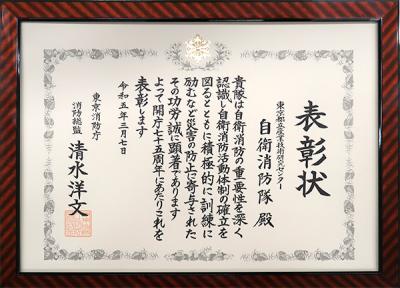 表彰状
東京都立産業技術研究センター
自衛消防隊 殿
貴隊は自衛消防の重要性を深く
認識し自衛消防活動体制の確立を
図るとともに積極的に訓練に
励むなど災害の防止に寄与された
その功労誠に顕著であります
よって開庁七十五周年にあたりこれを
表彰します
令和五年三月七日
東京消防庁
消防総監 清水洋文